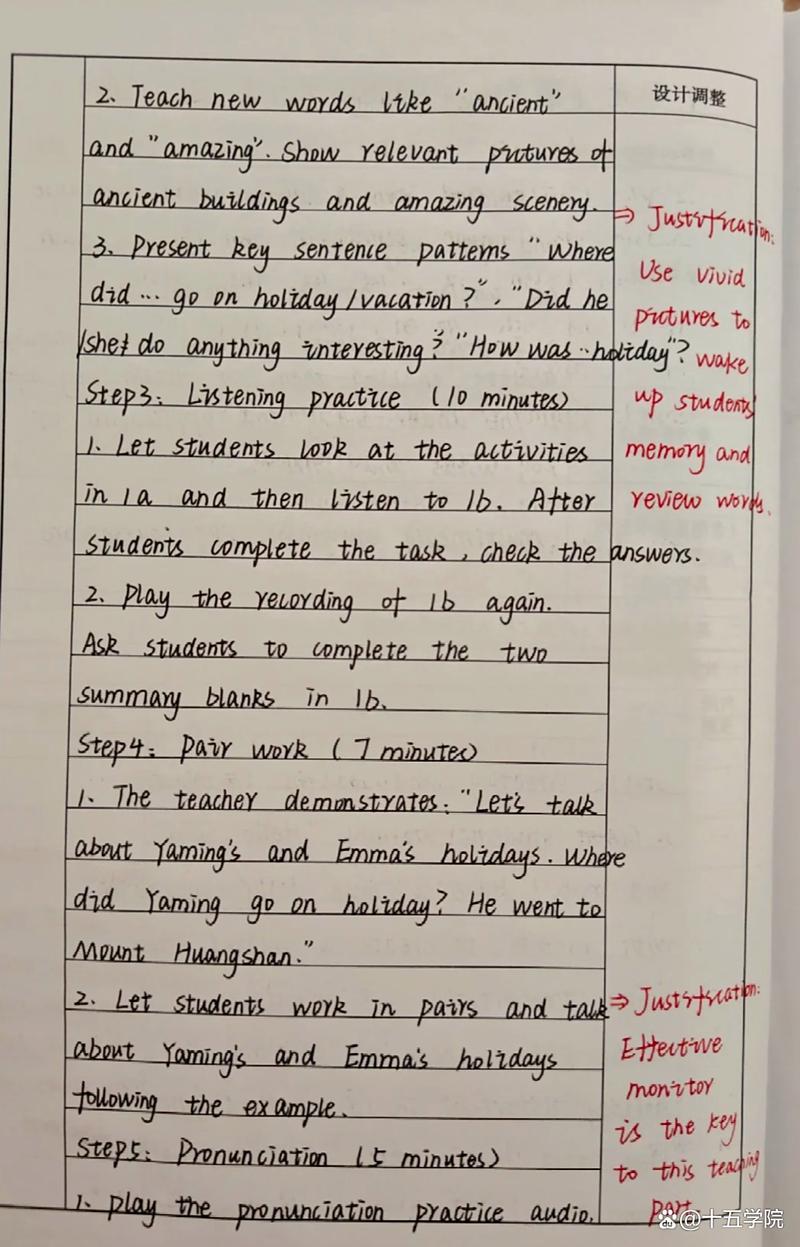 设计调整
2. Teach new words like "ancient"
and "amazing". Show relevant pictures of
ancient buildings and amazing scenery.
3. Present key sentence patterns "Where
did... go on holiday/vacation?", "Did he
/she do anything interesting? "How was...holiday"?
Step3: Listening practice (10 minutes)
1. Let students look at the activities
in 1a and then listen to 1b. After
students complete the task, check the answers.
2. Play the recording of 1b again.
Ask students to complete the two
summary blanks in 1b.
Step4: Pair work (7 minutes)
1. The teacher demonstrates: "Let's talk
about Yaming's and Emma's holidays. Where
did Yaming go on holiday? He went to
Mount Huangshan."
2. Let students work in pairs and talk
about Yaming's and Emma's holidays
following the example.
Step5: Pronunciation (5 minutes)
1. Play the pronunciation practice audio.
⇒ Justification:
Use vivid
pictures to
wake
up students'
memory and
review words.
⇒ Justification:
Effective
monitor
is the key
to this teaching
part
@十五学院